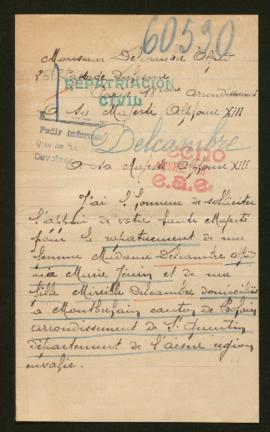 60530
Monsieur Delcambre Alfred
REPATRIACIÓN
CIVIL
arrondissement
a sa Majesté Alphonse XIII
Pedir informes
Delcambre
a sa Majesté Alphonse XIII
J'ai l'honneur de solliciter
l'appui de votre haute Majesté
pour le rapatriement de ma
femme Madame Delcambre
née Marie et de ma
fille Mireille Delcambre domiciliées
à Montbrehain canton de Bohain
arrondissement de St Quentin
département de l'aisne région
envahie.